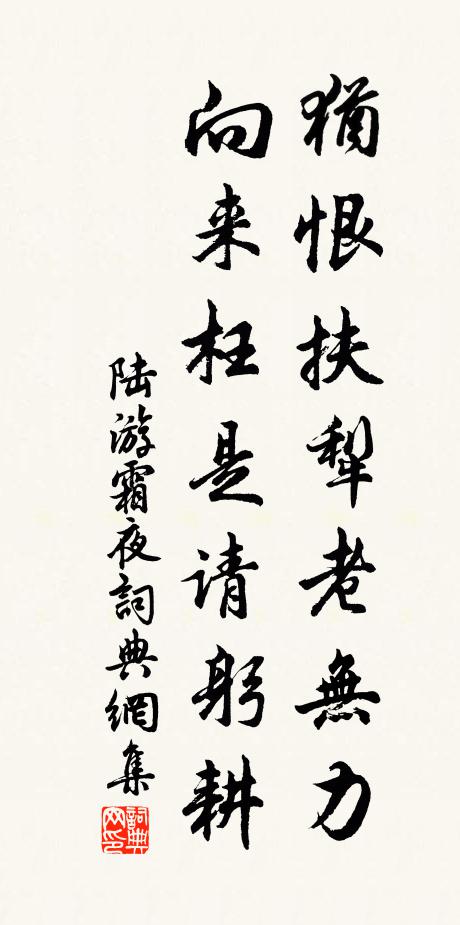 猶恨扶犂老無力
向来枉是请躬耕
陆游霜夜詞典網集
詞典网印